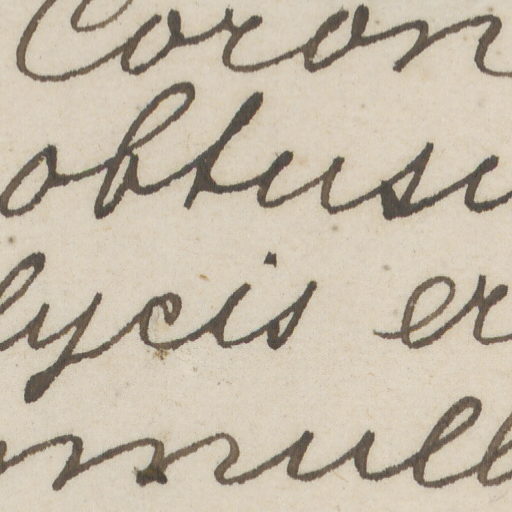 Coron
obtusi
lycis er
nnull